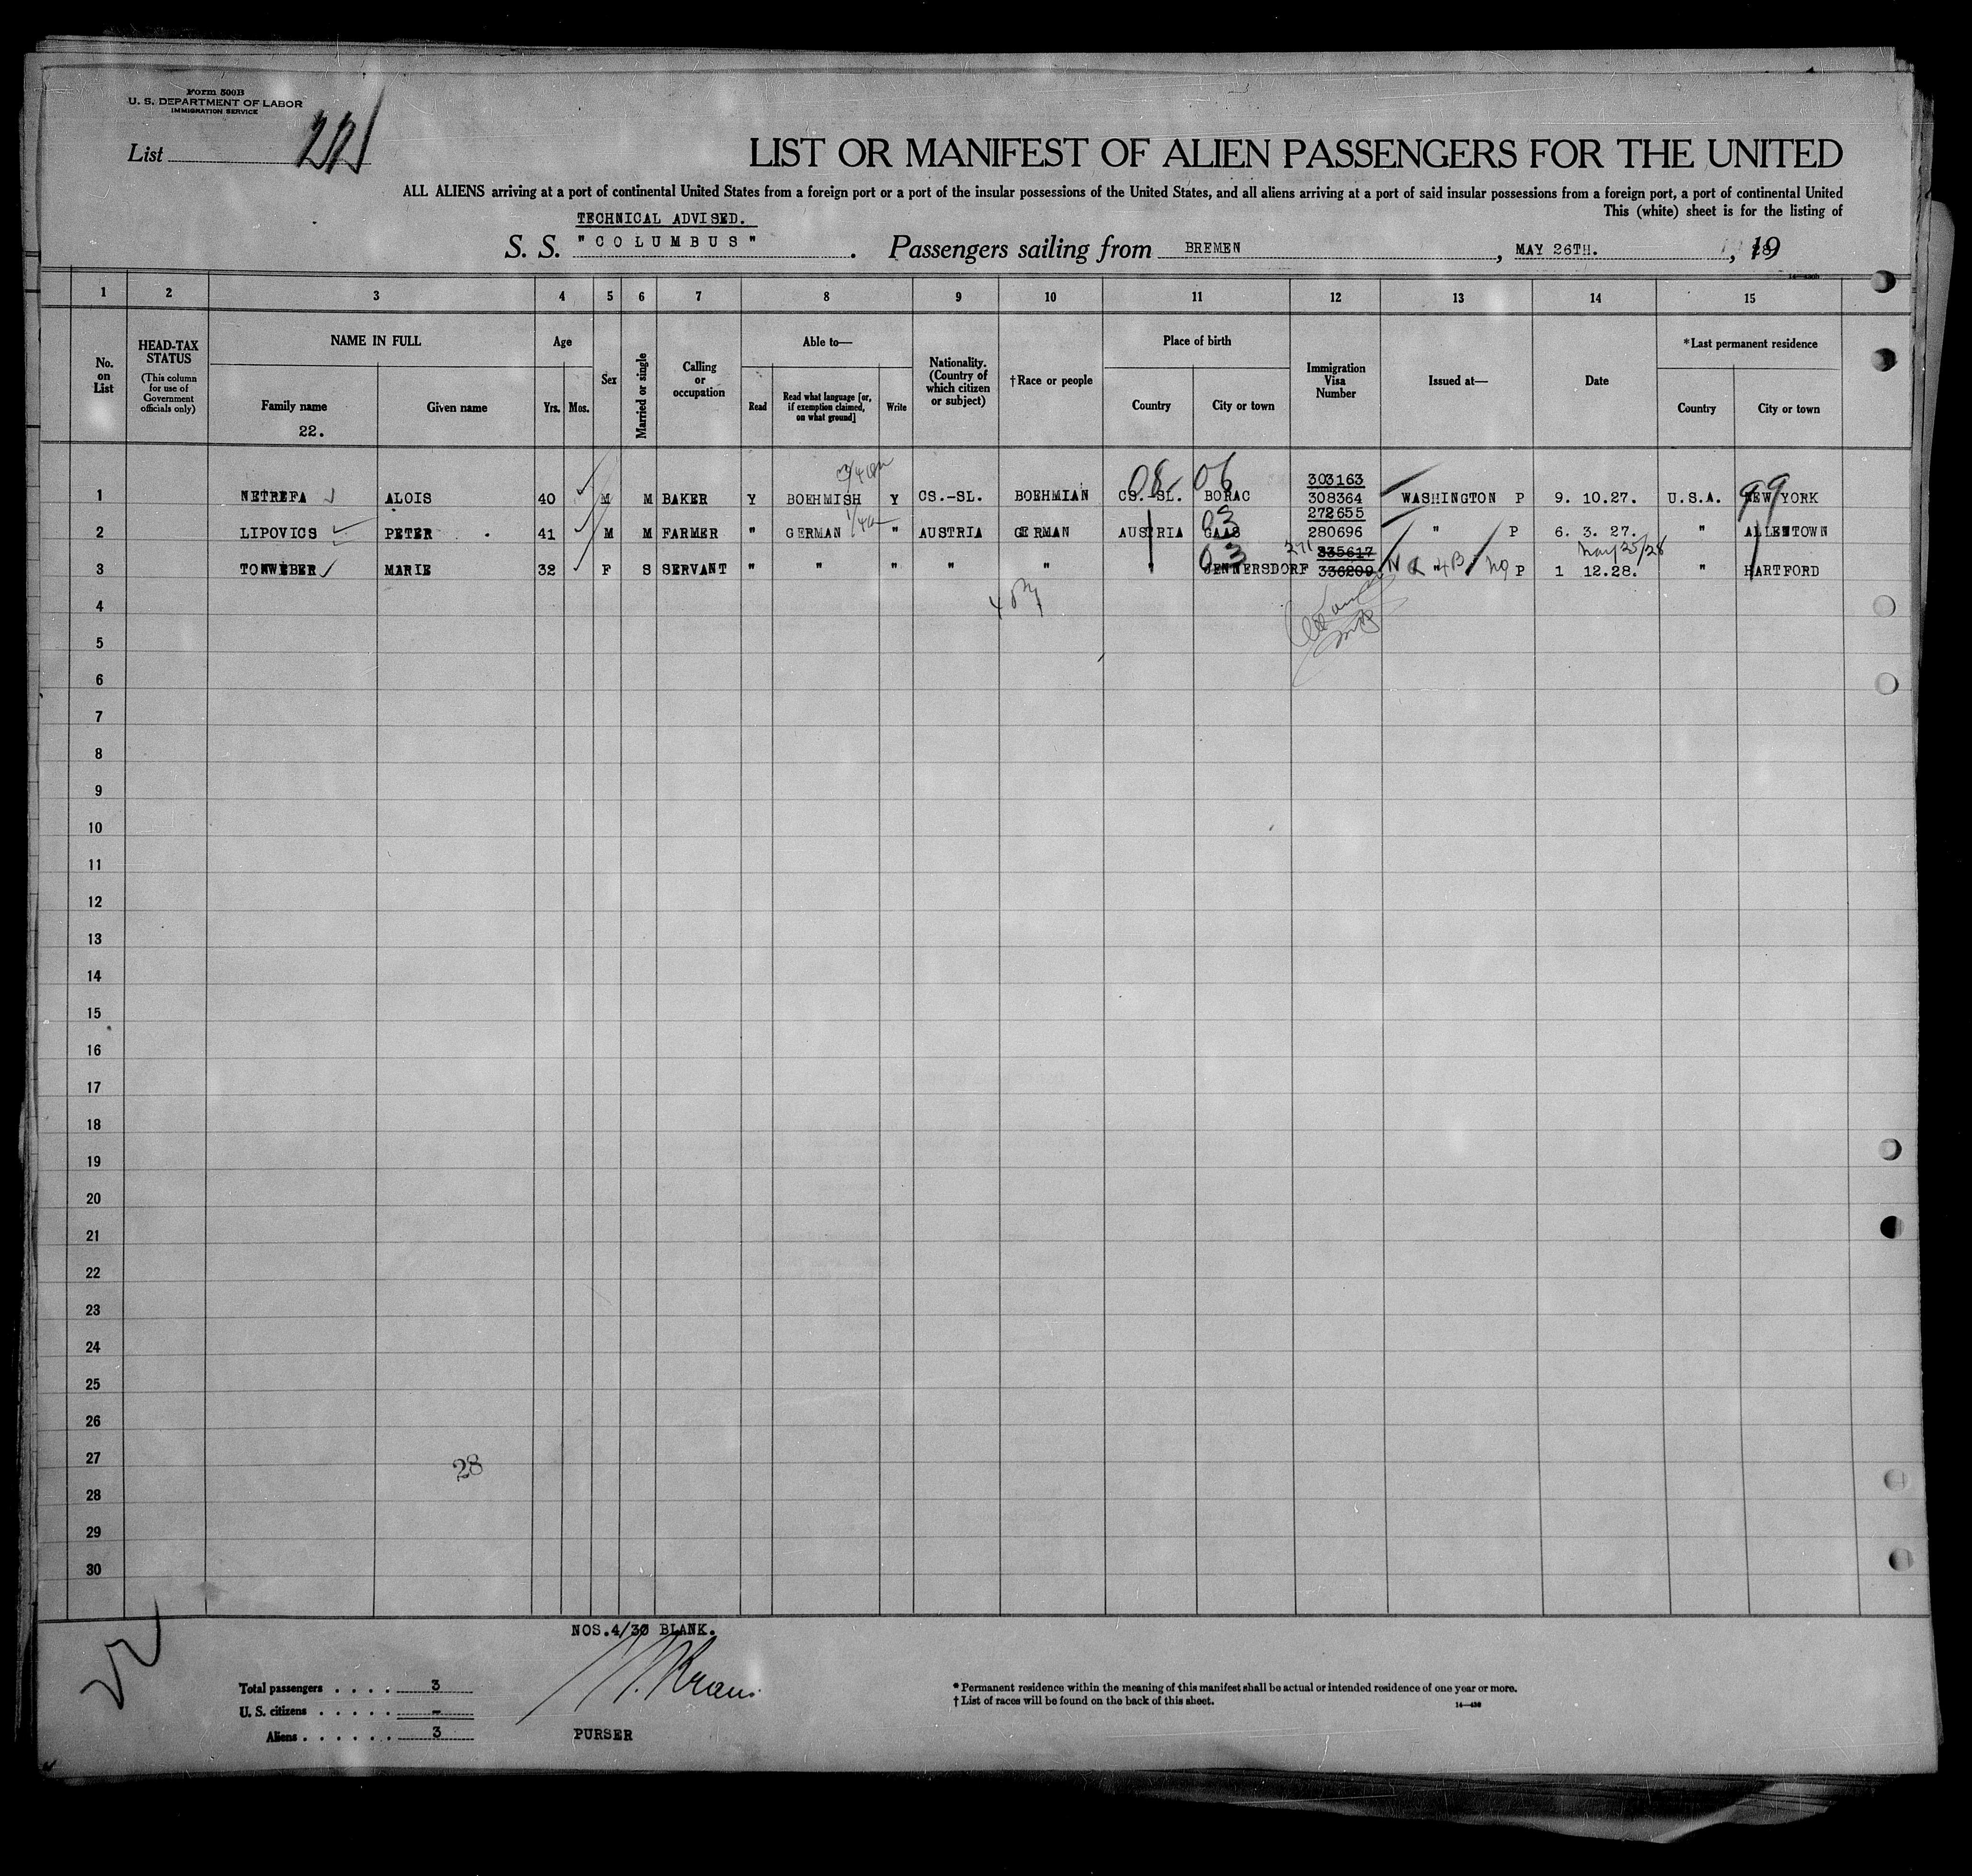 Form 500B
U. S. DEPARTMENT OF LABOR
IMMIGRATION SERVICE
List
LIST OR MANIFEST OF ALIEN PASSENGERS FOR THE UNITED
ALL ALIENS arriving at a port of continental United States from a foreign port or a port of the insular possessions of the United States, and all aliens arriving at a port of said insular possessions from a foreign port, a port of continental United
This (white) sheet is for the listing of
TECHNICAL ADVISED.
S. S. "COLUMBUS". Passengers sailing from BREMEN, MAY 26TH., 1928
14-430b
1 2 3 4 5 6 7 8 9 10 11 12 13 14 15
No. on List
HEAD-TAX STATUS
(This column for use of Government officials only)
NAME IN FULL
Family name
22.
Given name
Age
Yrs. Mos.
Sex
Married or single
Calling or occupation
Able to—
Read
Read what language [or, if exemption claimed, on what ground]
Write
Nationality. (Country of which citizen or subject)
†Race or people
Place of birth
Country
City or town
Immigration Visa Number
Issued at—
Date
*Last permanent residence
Country
City or town
08 06
303163
1 NETREFA ALOIS 40 M M BAKER Y BOEHMISH Y CS.-SL. BOEHMIAN CS.-SL. BORAC 308364 WASHINGTON P 9. 10.27. U.S.A. NEW YORK
99
03 272655
2 LIPOVICS PETER 41 M M FARMER " GERMAN " AUSTRIA GERMAN AUSTRIA GAAS 280696 " P 6. 3. 27. " ALLENTOWN
03 271 335617 May 25/28
3 TONWEBER MARIE 32 F S SERVANT " " " " " " JENNERSDORF 336209 4B " no P 1 12.28. " HARTFORD
4
5
6
7
8
9
10
11
12
13
14
15
16
17
18
19
20
21
22
23
24
25
26
27
28
28
29
30
NOS.4/30 BLANK.
Total passengers . . . . 3
U. S. citizens . . . . . -
Aliens . . . . . . 3
PURSER
* Permanent residence within the meaning of this manifest shall be actual or intended residence of one year or more.
† List of races will be found on the back of this sheet.
14—430